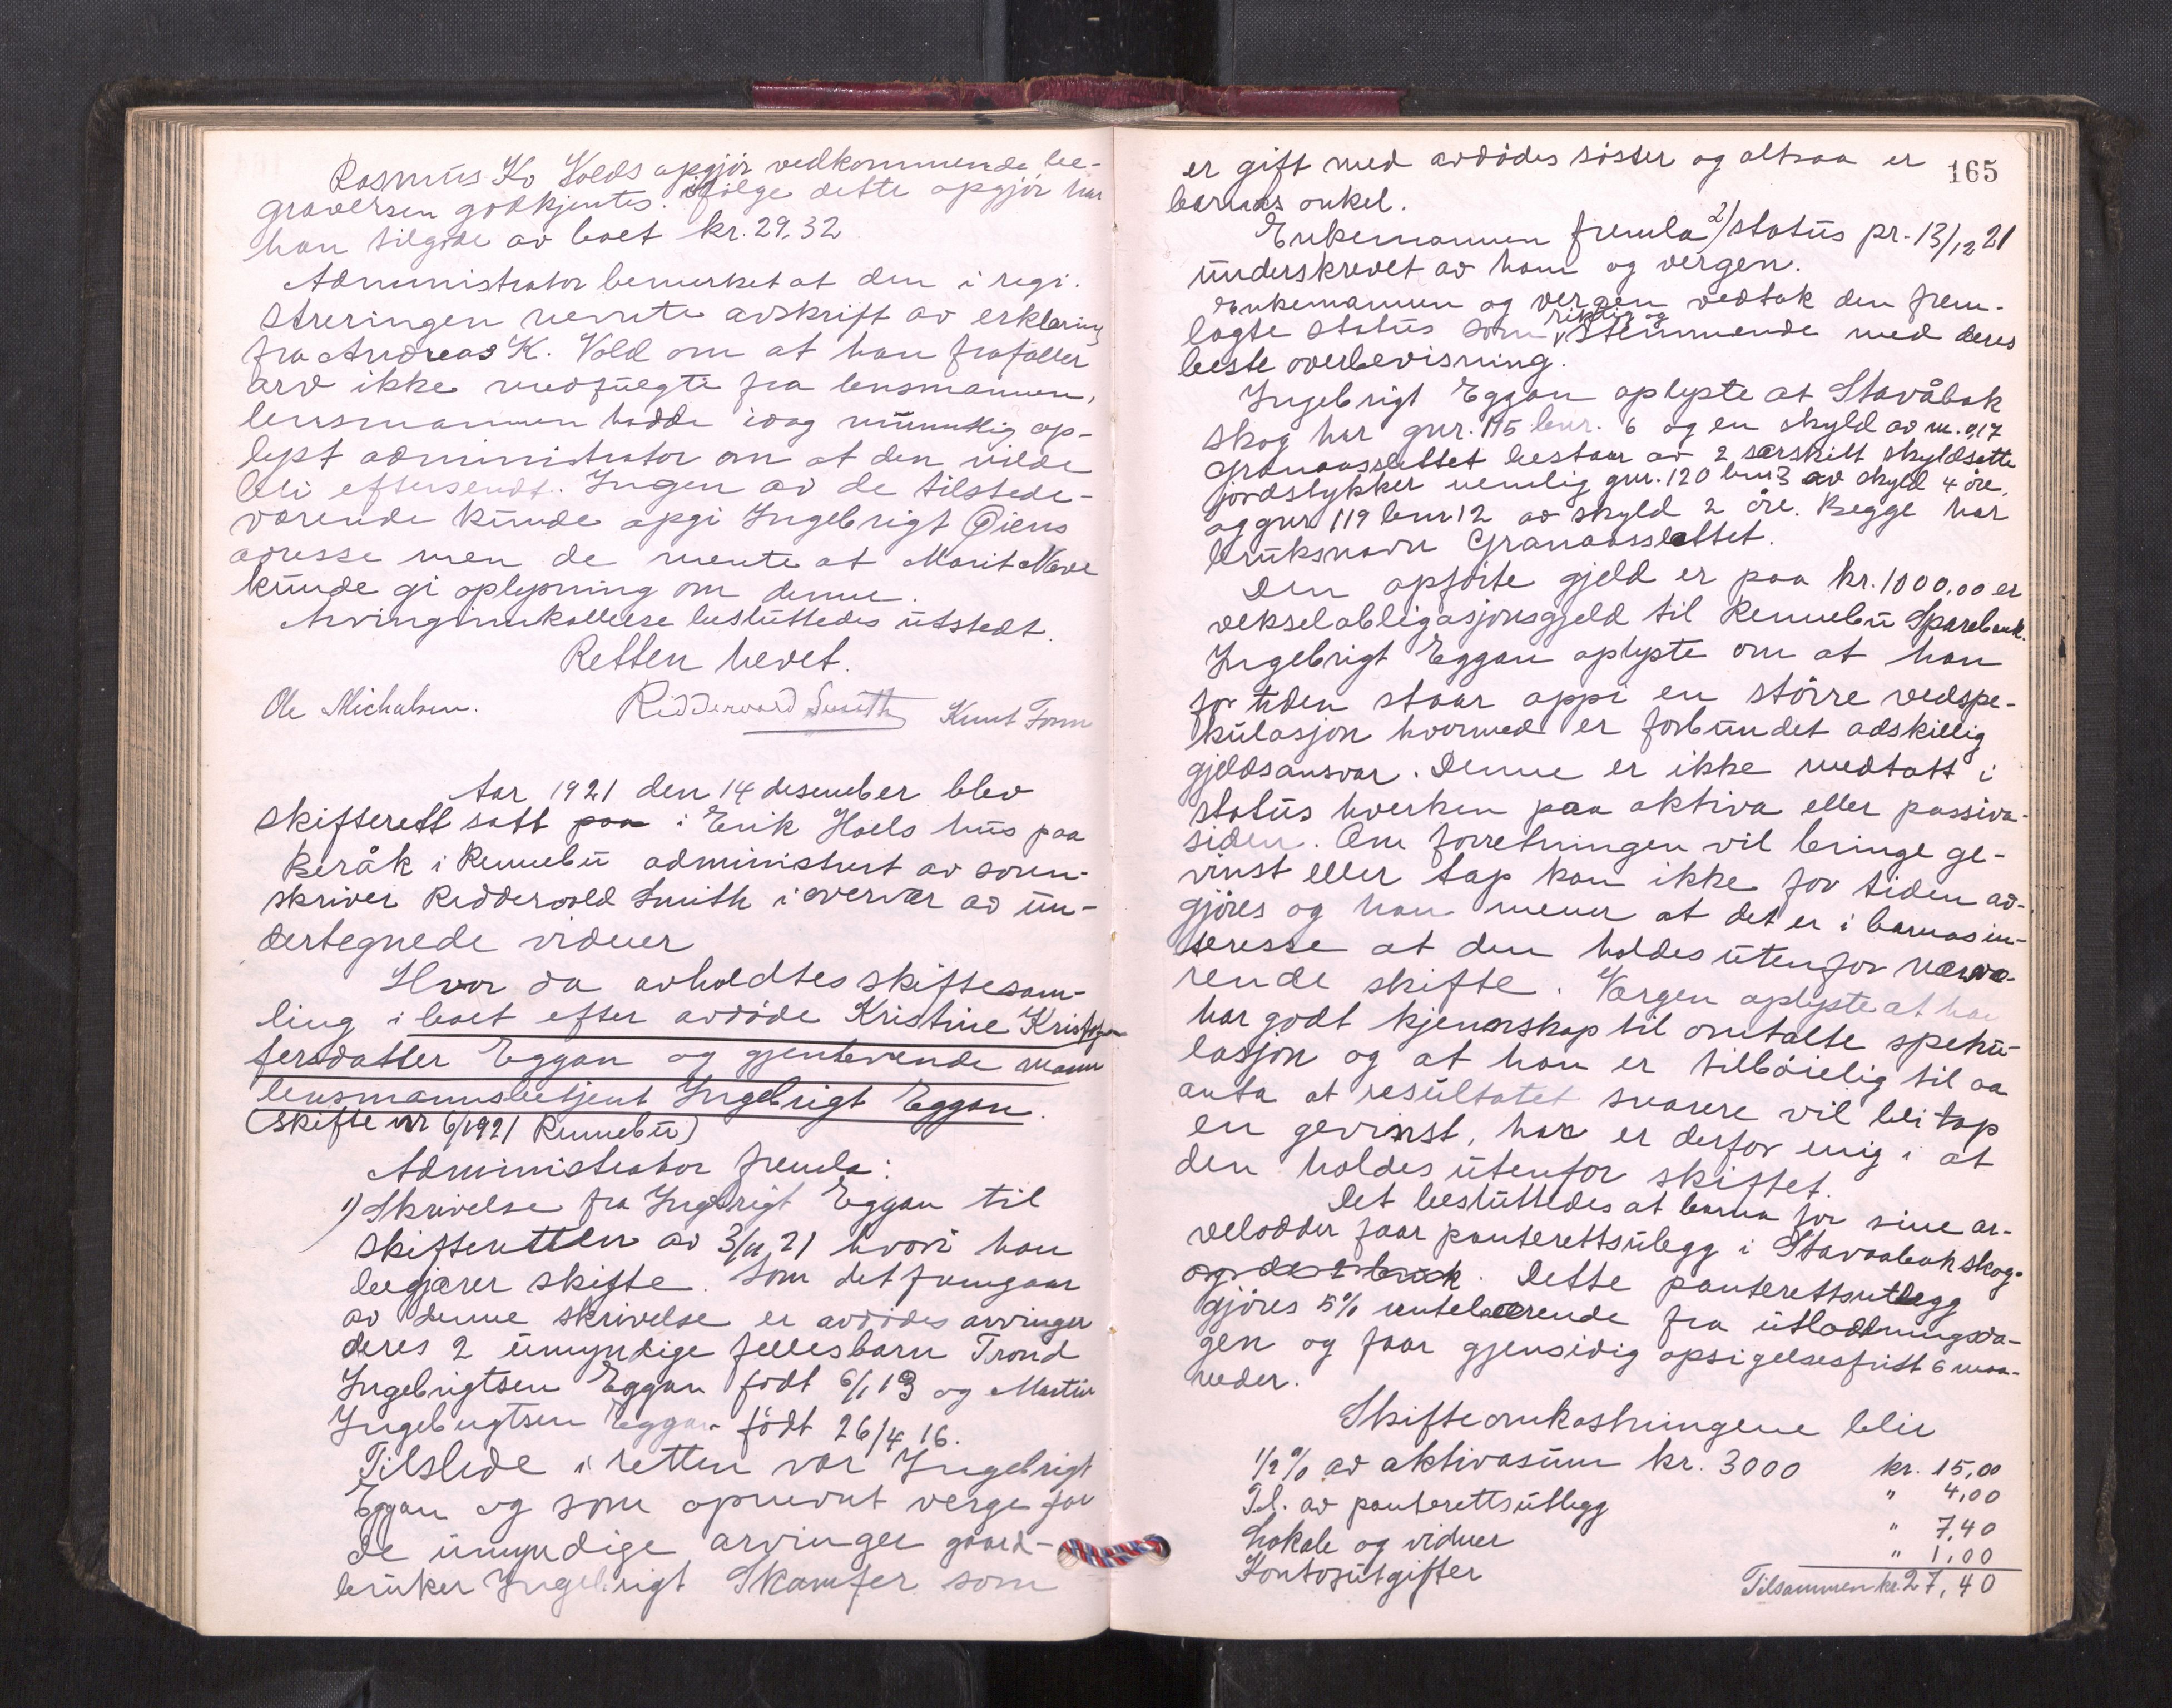 Rasmus K. Volds opgjör vedkommende be-
graverlsen godkjentes. Ifölge dette opgjör har
han tilgode av boet kr. 29.32
Administrator bemerket at den i regi-
streringen nevnte avskrift av erklæring
fra Andreas K. Vold om at han frafaller
arv ikke medfulgte fra lensmannen,
lensmannen hadde idag munntlig op-
lyst administrator om at den vilde
bli eftersendt. Ingen av de tilstede-
værende kunde opgi Ingebrigt Öiens
adresse men de mente at Marit Neve
kunde gi oplysning om denne.
Arvinginnkallelse besluttedes utstedt.
Retten hevet.
Ole Michalsen. Ridderwold Smith Knut Form
Aar 1921 den 14 desember blev
skifterett satt paa i Erik Haels hus paa
Beråk i Rennebu administrert av soren-
skriver Ridderwold Smith i overvær av un-
dertegnede vidner
Hvor da avholdtes skiftesam-
ling i boet efter avdöde Kristine Kristof-
fersdatter Eggan og gjenlevende mann
lensmannsbetjent Ingebrigt Eggan.
(Skifte nr 6/1921 Rennebu)
Administrator fremla:
1) Skrivelse fra Ingebrigt Eggan til
skifteretten av 3/11 21 hvori han
begjærer skifte. Som det fremgaar
av denne skrivelse er avdödes arvinger
deres 2 umyndige fellesbarn Trond
Ingebrigtsen Eggan födt 6/1 13 og Martin
Ingebrigtsen Eggan födt 26/4 16.
Tilstede i retten var Ingebrigt
Eggan og som opnevnt verge for
de umyndige arvinger gaard-
bruker Ingebrigt Skamfer som
165
er gift med avdödes söster og altsaa er
barnas onkel.
Enkemannen fremla 2) status pr. 13/12 21
underskrevet av ham og vergen.
Enkemannen og vergen vedtok den frem-
lagte status som riktig og stemmende med deres
beste overbevisning.
Ingebrigt Eggan oplyste at Stavåbak
skog har gnr. 115 bnr. 6 og en skyld av m. 0,17
Granaasslettet bestaar av 2 særskilt skyldsatte
jordstykker nemlig gnr. 120 bnr 3 av skyld 4 öre,
og gnr 119 bnr 12 av skyld 2 öre. Begge har
bruksnavn Granaasslettet.
Den opförte gjeld er paa kr. 1000,00 er
vekselobligasjonsgjeld til Rennebu Sparebank.
Ingebrigt Eggan oplyste om at han
for tiden staar oppi en större vedspe-
kulasjon hvormed er forbundet adskillig
gjeldsansvar. Denne er ikke medtatt i
status hverken paa aktiva eller passiva-
siden. Om forretningen vil bringe ge-
vinst eller tap kan ikke for tiden av-
gjöres og han mener at det er i barnas in-
teresse at den holdes utenfor nærvæ-
rende skifte. Vergen oplyste at han
har godt kjennskap til omtalte speku-
lasjon og at han er tilböielig til aa
anta at resultatet snarere vil bli tap
en gevinst, han er derfor enig i at
den holdes utenfor skiftet.
Det besluttedes at barna for sine ar-
velodder faar panterettsutlegg i Stavaabakskog.
Dette panterettsutlegg
gjöres 5% rentebærende fra utlodningsda-
gen og faar gjensidig opsigelsesfrist 6 maa-
neder.
Skifteomkostningene blir
1/2 % av aktivasum kr. 3000 kr. 15,00
Tl. av panterettsutlegg " 4,00
Lokale og vidner " 7,40
Kontorutgifter " 1,00
Tilsammen kr. 27,40